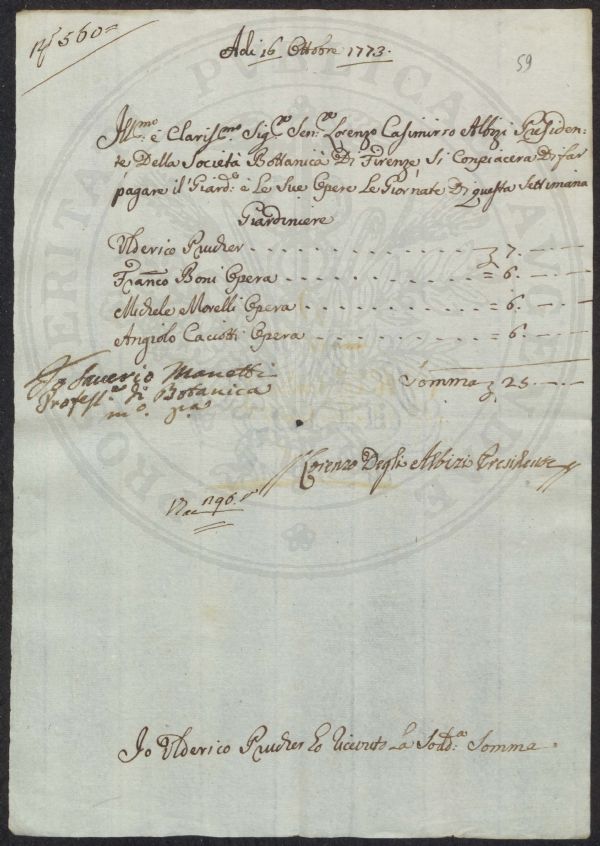 N.° 560=
Adi 16 Ottobre 1773.
59
Ill.mo è Claris.mo Sig.re Sen.re Lorenzo Casimirro Albizi Presiden=
te Della Società Bottanica Di Firenze Si Conpiacera Di far
pagare il Giard.e è Le Sue Opere Le Giornate Di Questa Settimana
Giardiniere
Ulderico Prucher - - - - - - - - - - - £ 7. - - -
Fran.co Boni Opera - - - - - - - - - - = 6. - - -
Michele Morelli Opera - - - - - - - - = 6. - - -
Angiolo Caciotti Opera - - - - - - - - = 6. - - -
Saverio Manetti
Profess.re di Botanica
m.o p.a
Somma £ 25. - - -
Lorenzo Degli Albizi Presidente
196.
Io Ulderico Prucher ho Riceuto La Sodd.a Somma